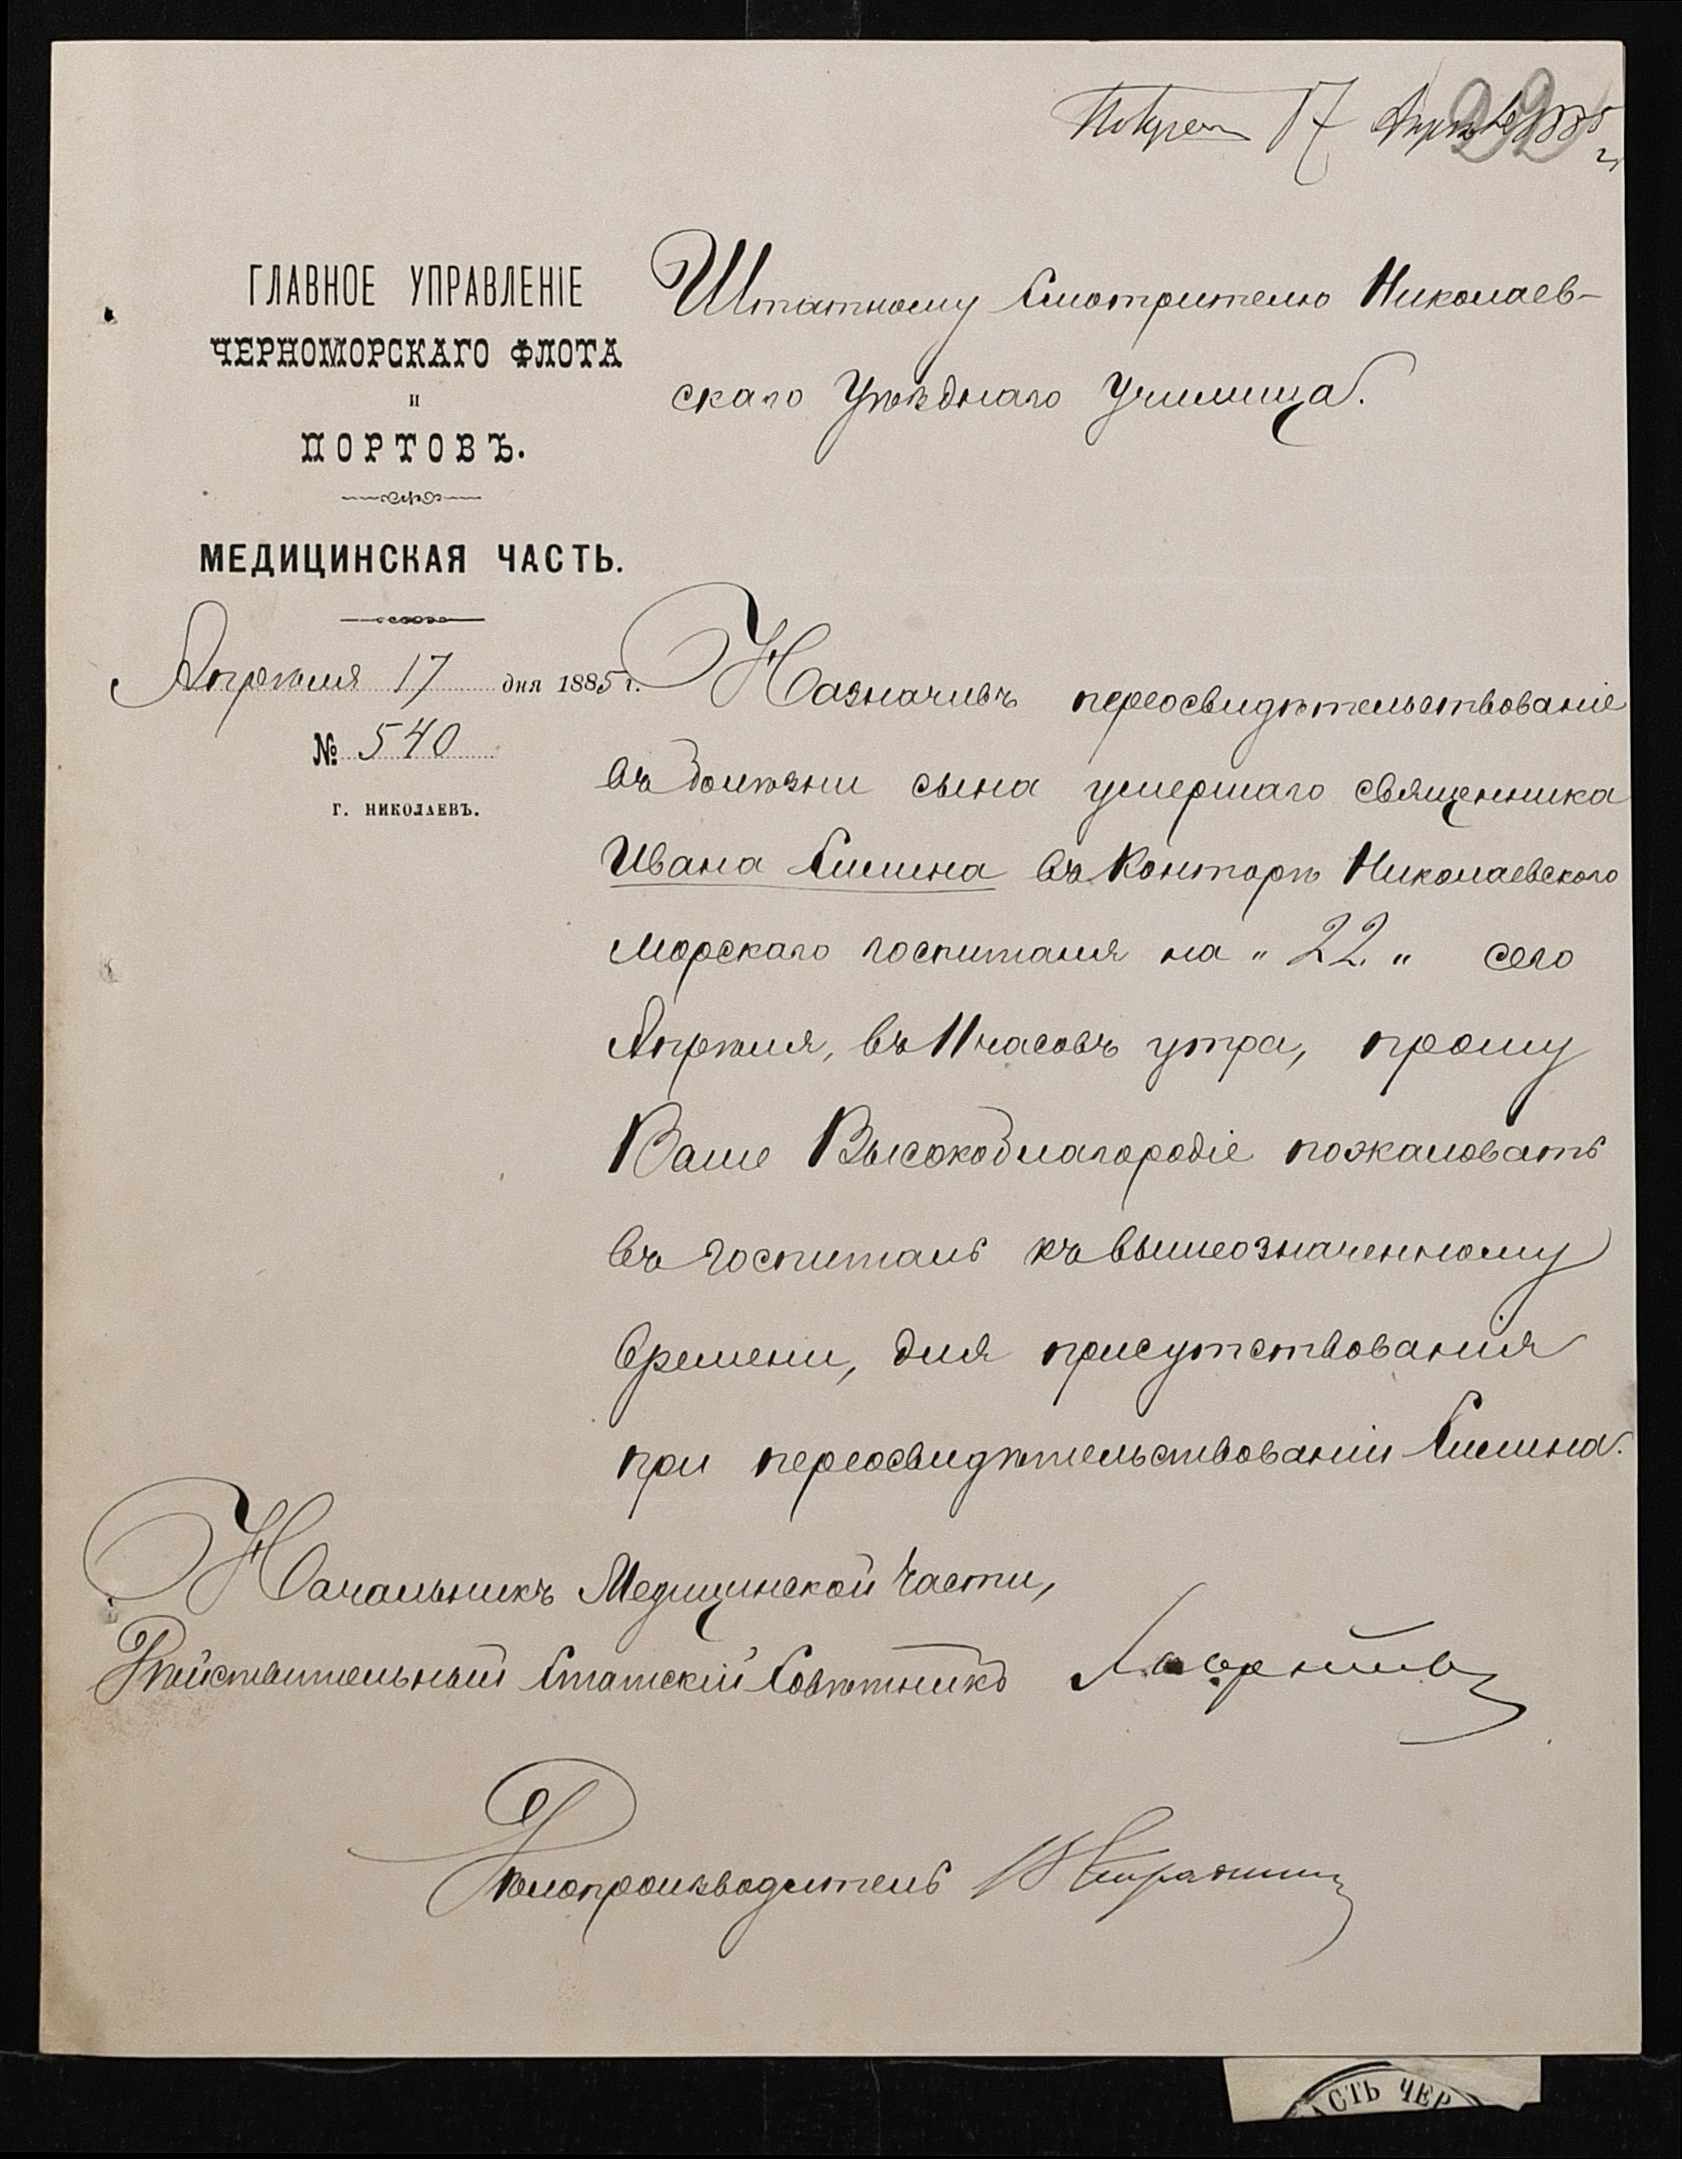 Получен 17 Апреля 1885 г.
22
ГЛАВНОЕ УПРАВЛЕНІЕ
ЧЕРНОМОРСКАГО ФЛОТА
И
ПОРТОВЪ.
МЕДИЦИНСКАЯ ЧАСТЬ.
Апрѣля 17 дня 1885 г.
№ 540
Г. НИКОЛАЕВЪ.
Штатному Смотрителю Николаев-
скаго Уѣзднаго Училища.
Назначивъ переосвидѣтельствованіе
въ болѣзни сына умершаго священника
Ивана Силина въ Конторѣ Николаевскаго
Морскаго госпиталя на „22„ сего
Апрѣля, въ 11 часовъ утра, прошу
Ваше Высокоблагородіе пожаловать
въ госпиталь къ вышеозначенному
времени, для присутствованія
при переосвидѣтельствованіи Силина.
Начальникъ Медицинской Части,
Дѣйствительный Статскій Совѣтникъ
Дѣлопроизводитель
АСТЬ ЧЕР